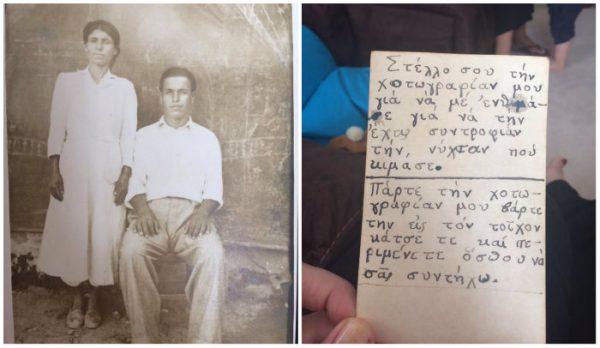 Στέλλο σου τήν
χοτωγραφίαν μου
γιά νά μέ ἐνθυμᾶ-
σε γιά νά τήν
ἔχης συντροφιάν
τήν νύχταν πού
κιμᾶσε.
Πάρτε τήν χοτω-
γραφίαν μου βάρτε
την εἰς τόν τοῖχον
κάτσε τε καί πε-
ριμένετε ὅσπου νά
σᾶς συντήχω.